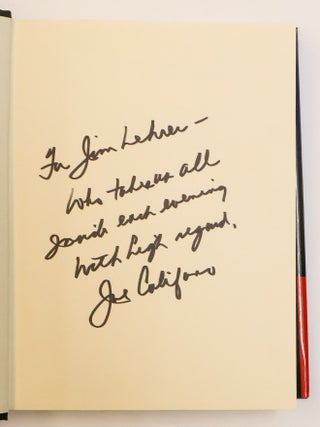 For Jim Lehrer —
Who takes us all
inside each evening
With high regard,
Joe Califano